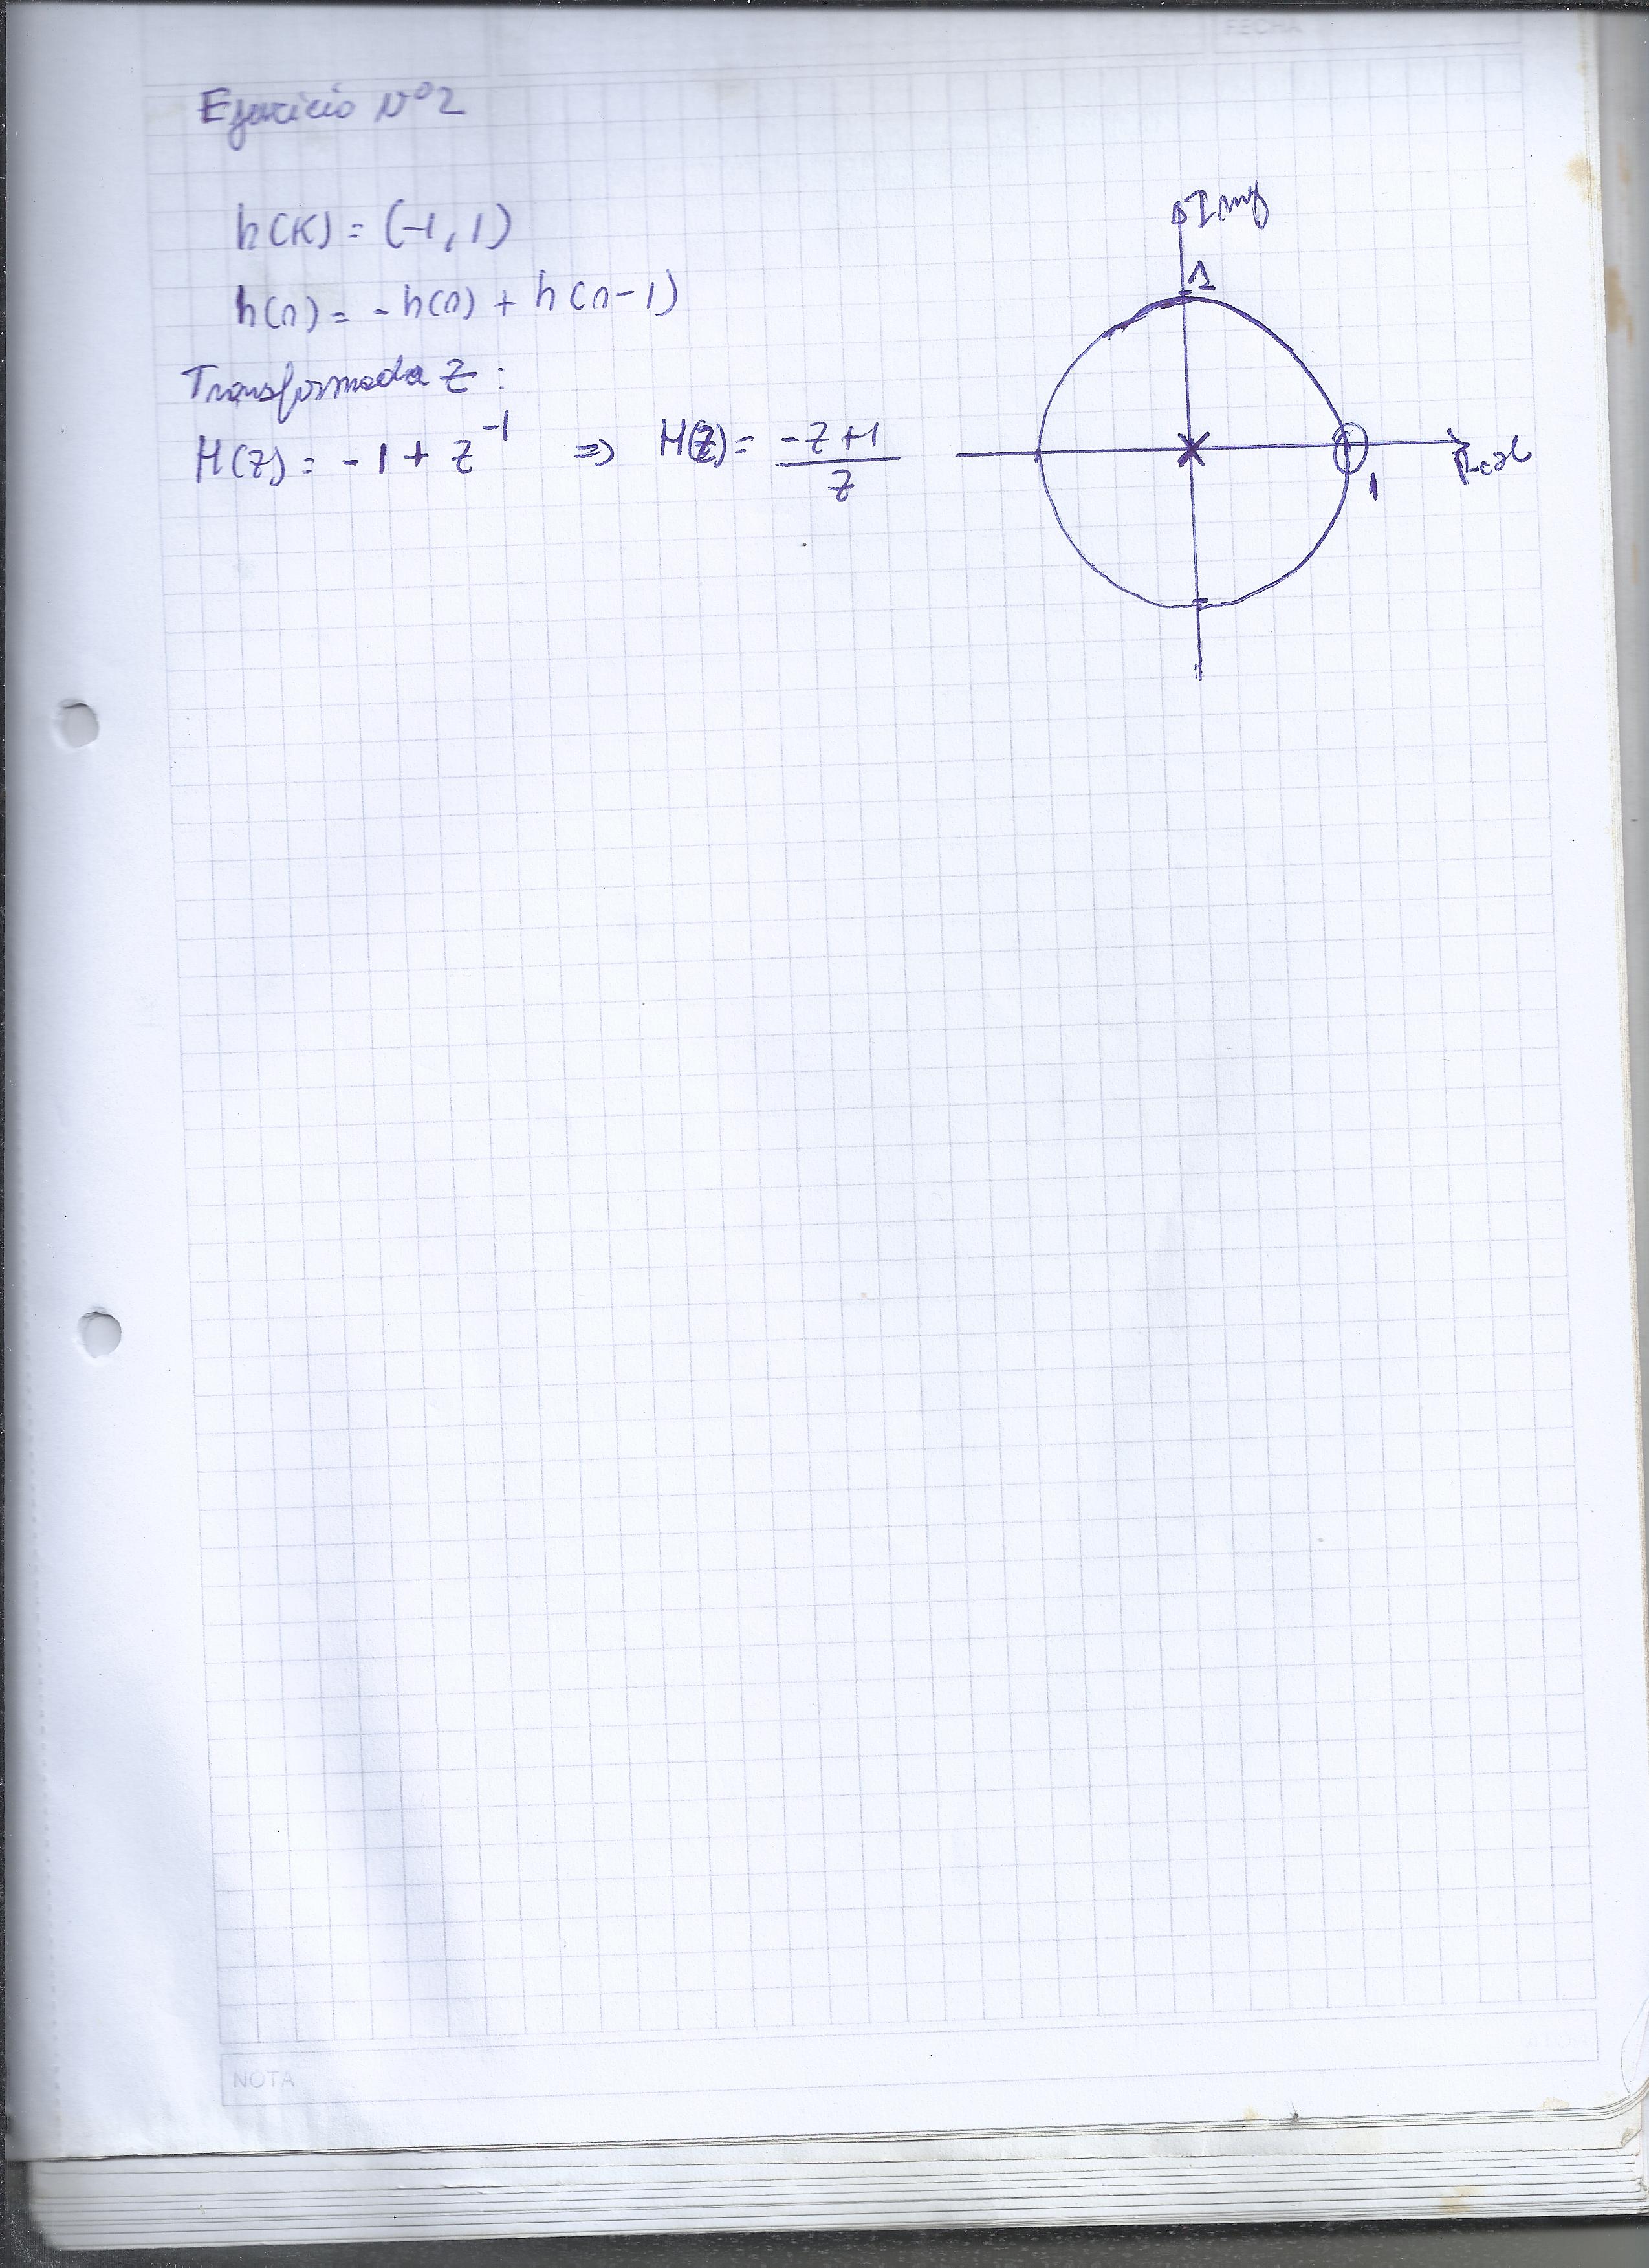 FECHA
Ejercicio Nº2
h(K) = (-1, 1)
h(n) = -h(n) + h(n-1)
Transformada Z :
H(z) = -1 + z^-1 ⇒ H(z) = (-z+1)/z
Img
1
Real
1
NOTA